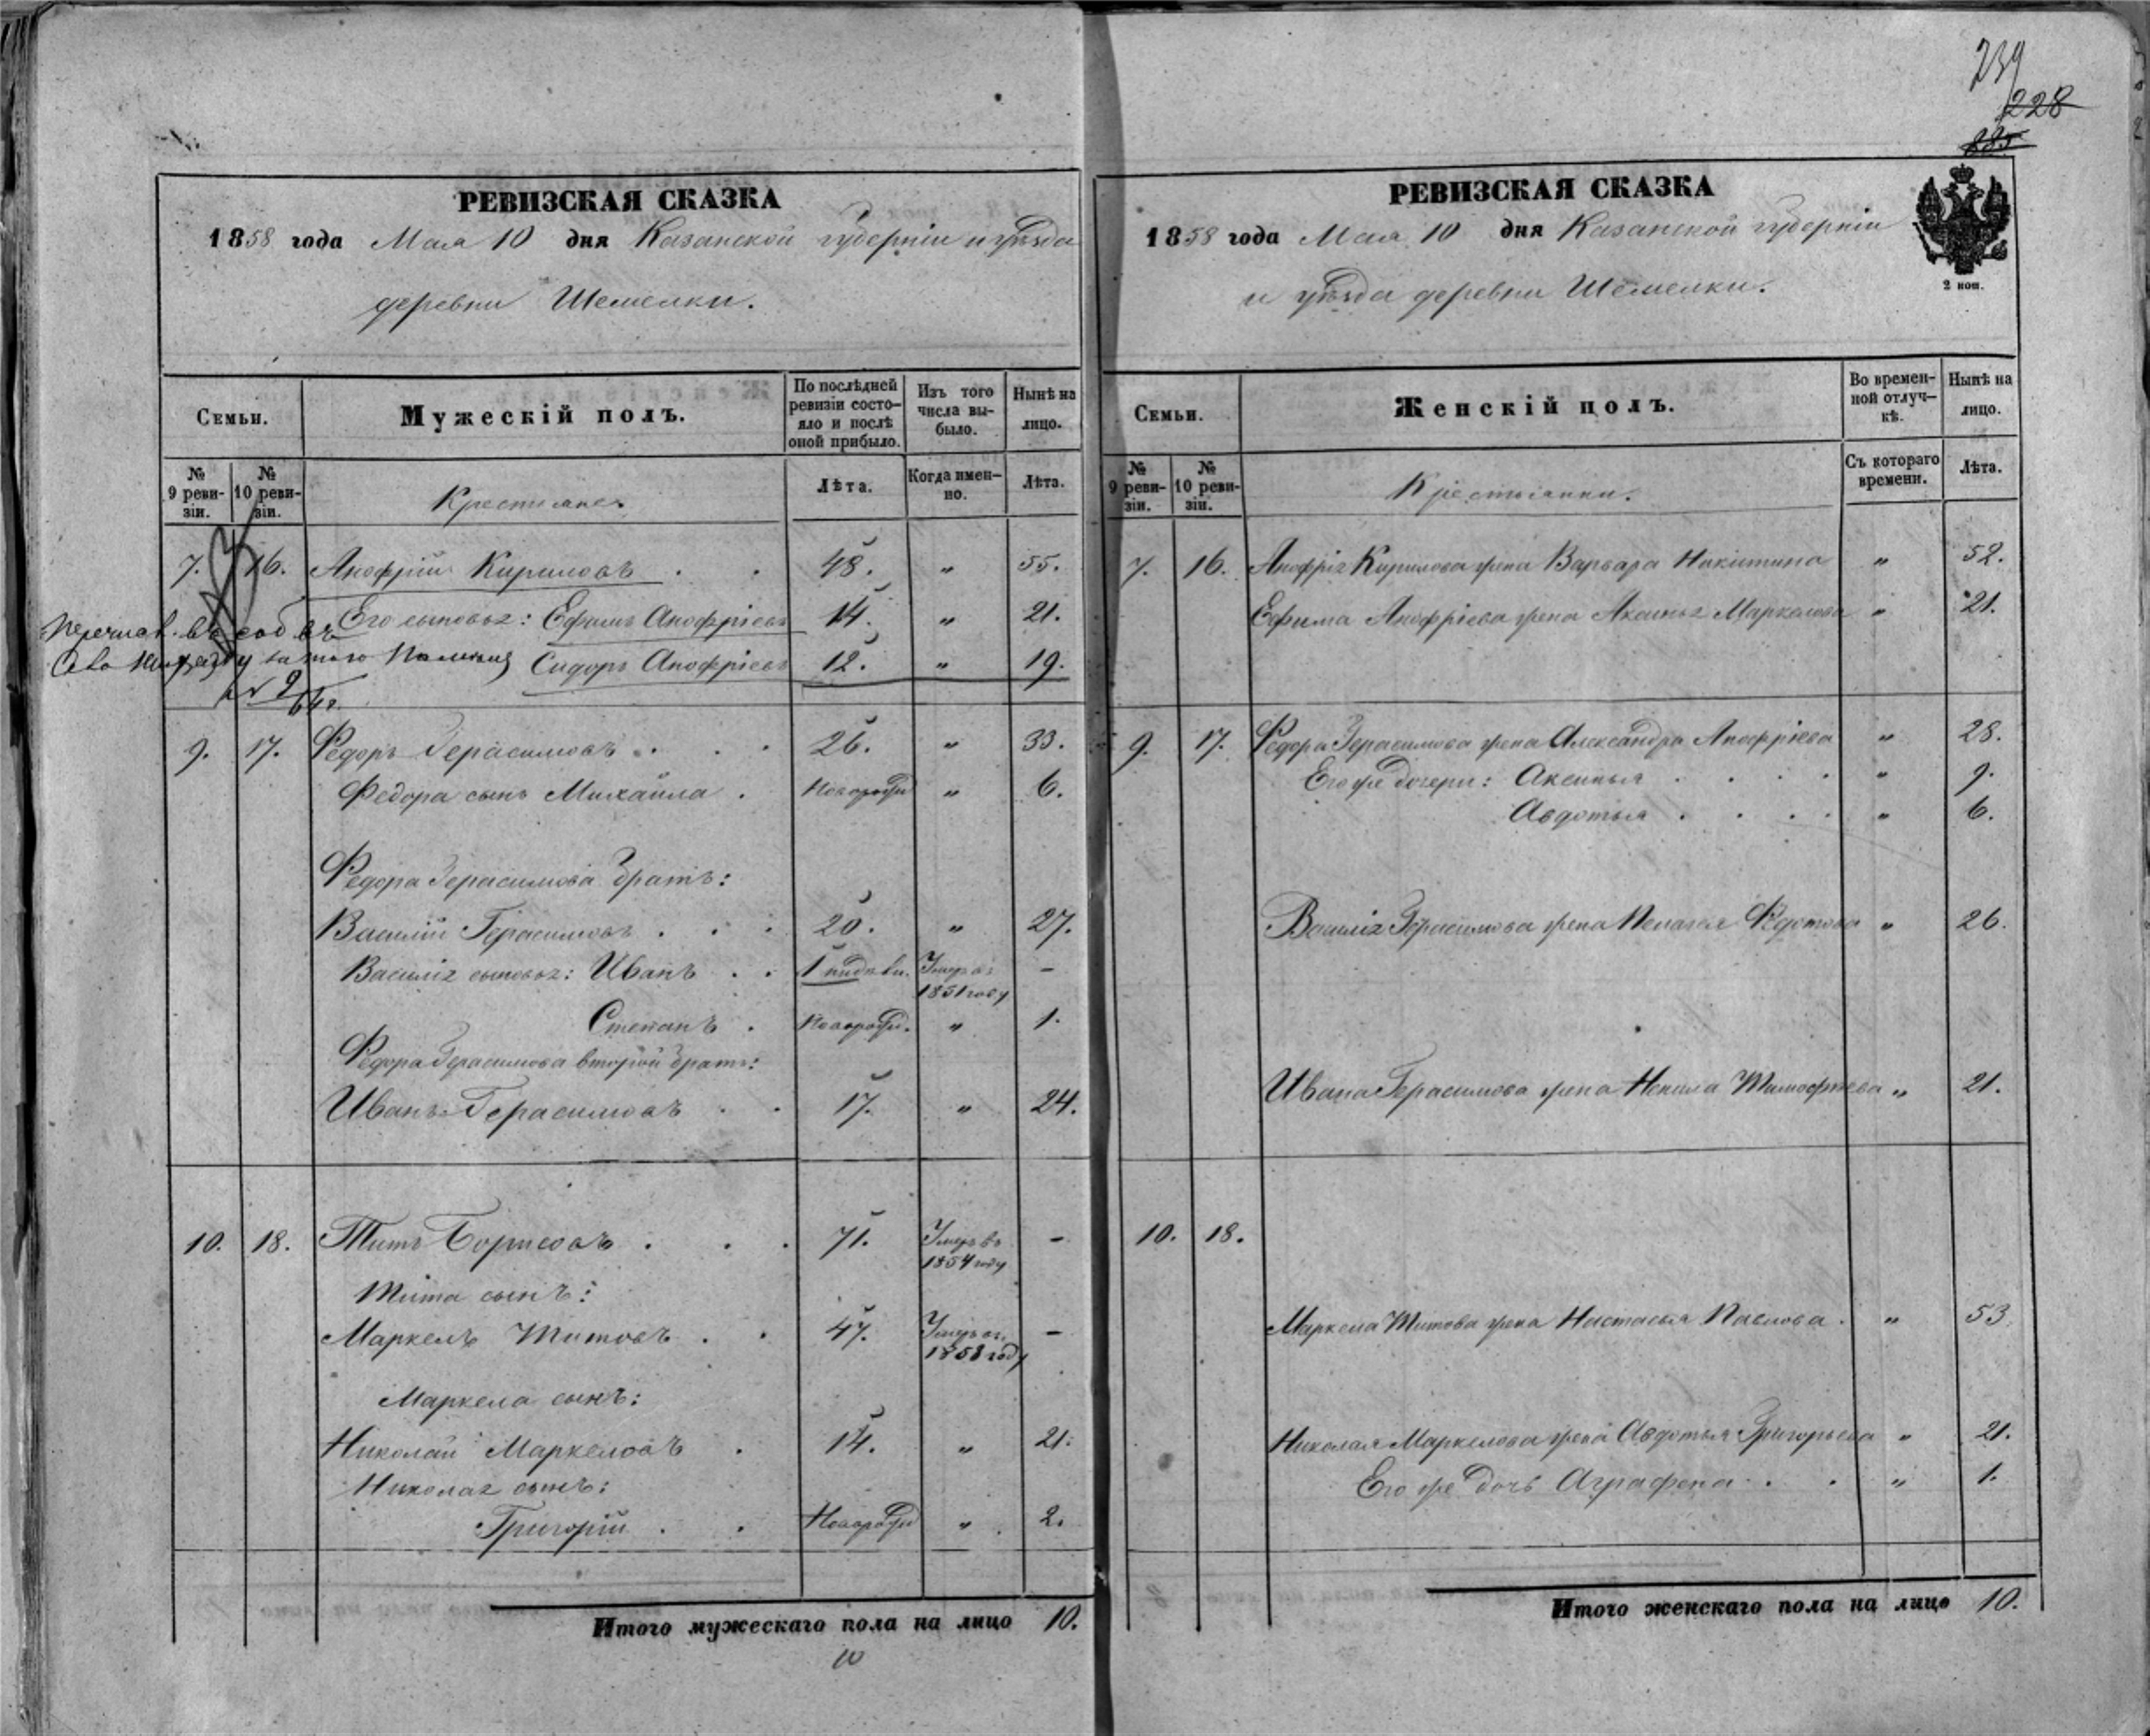 239
228
РЕВИЗСКАЯ СКАЗКА
1858 года Мая 10 дня Казанской губерніи и уѣзда
деревни Шемелки.
Семьи.
Мужескій полъ.
По послѣдней ревизіи состояло и послѣ оной прибыло.
Изъ того числа выбыло.
Нынѣ на лицо.
№ 9 ревизіи.
№ 10 ревизіи.
Крестьяне.
Лѣта.
Когда именно.
Лѣта.
7. 16. Анофрій Кириловъ . . 48. " 55.
Его сыновья: Ефимъ Анофріевъ 14. " 21.
Сидоръ Анофріевъ 12. " 19.
9. 17. Федоръ Герасимовъ . . . 26. " 33.
Федора сынъ Михайла . Новорожд " 6.
Федора Герасимова братъ:
Василій Герасимовъ . . . 20. " 27.
Василія сыновья: Иванъ . . 1 Умеръ въ 1851 году -
Степанъ . Новорожд. " 1.
Федора Герасимова второй братъ:
Иванъ Герасимовъ . . 17. " 24.
10. 18. Титъ Борисовъ . . . 71. Умеръ въ 1854 году -
Тита сынъ:
Маркелъ Титовъ . . 47. Умеръ въ 1858 году -
Маркела сынъ:
Николай Маркеловъ . 14. " 21.
Николая сынъ:
Григорій . . Новорожд " 2.
Итого мужескаго пола на лицо 10.
10
РЕВИЗСКАЯ СКАЗКА
1858 года Мая 10 дня Казанской губерніи
и уѣзда деревни Шемелки.
2 коп.
Семьи.
Женскій полъ.
Во временной отлучкѣ.
Нынѣ на лицо.
№ 9 ревизіи.
№ 10 ревизіи.
Крестьянки.
Съ котораго времени.
Лѣта.
7. 16. Анофрія Кирилова жена Варвара Никитина " 52.
Ефима Анофріева жена Аксинья Маркелова " 21.
9. 17. Федора Герасимова жена Александра Анофріева " 28.
Его же дочери: Аксинья . . . . " 9.
Авдотья . . . . " 6.
Василія Герасимова жена Пелагея Федотова " 26.
Ивана Герасимова жена Ненила Тимофѣева " 21.
10. 18.
Маркела Титова жена Настасья Павлова . " 53.
Николая Маркелова жена Авдотья Григорьева " 21.
Его же дочь Аграфена . . " 1.
Итого женскаго пола на лицо 10.